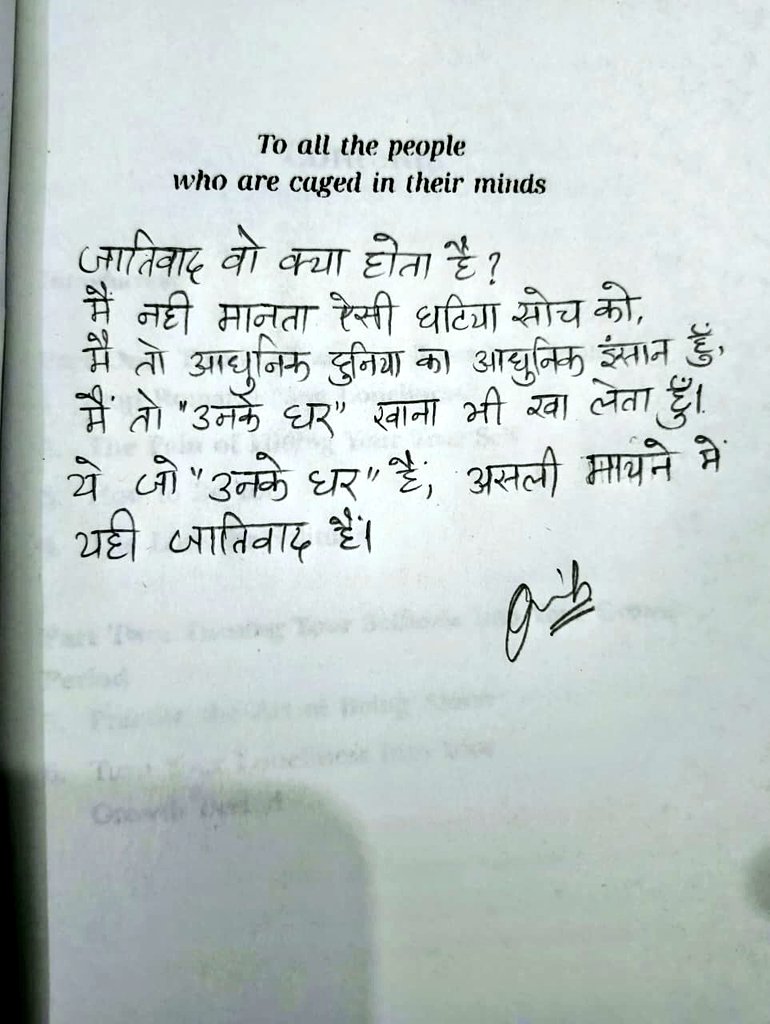 To all the people
who are caged in their minds
जातिवाद वो क्या होता है?
मैं नही मानता ऐसी घटिया सोच को,
मै तो आधुनिक दुनिया का आधुनिक इंसान हूँ,
मैं तो "उनके घर" खाना भी खा लेता हूँ।
ये जो "उनके घर" हैं, असली मायने में
यही जातिवाद हैं।